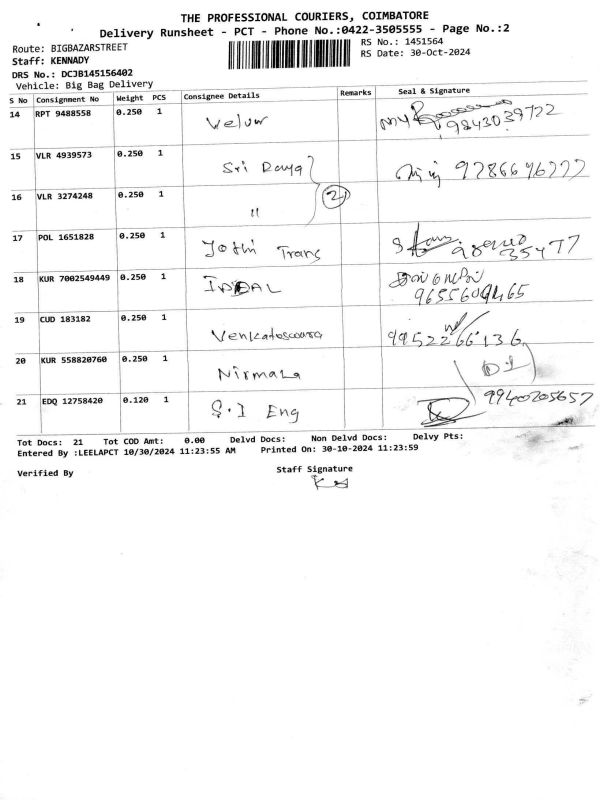 THE PROFESSIONAL COURIERS, COIMBATORE
Delivery Runsheet - PCT - Phone No.:0422-3505555 - Page No.:2
Route: BIGBAZARSTREET
RS No.: 1451564
Staff: KENNADY
RS Date: 30-Oct-2024
DRS No.: DCJB145156402
Vehicle: Big Bag Delivery
S No Consignment No Weight PCS Consignee Details Remarks Seal & Signature
14 RPT 9488558 0.250 1 Velur 9843039722
15 VLR 4939573 0.250 1 Sri Daya
16 VLR 3274248 0.250 1 " 2
17 POL 1651828 0.250 1 Jothi Trans
18 KUR 7002549449 0.250 1
19 CUD 183182 0.250 1 9952266136
20 KUR 558820760 0.250 1 Nirmala
21 EDQ 12758420 0.120 1 S.I Eng 9940205657
Tot Docs: 21 Tot COD Amt: 0.00 Delvd Docs: Non Delvd Docs: Delvy Pts:
Entered By :LEELAPCT 10/30/2024 11:23:55 AM Printed On: 30-10-2024 11:23:59
Verified By Staff Signature